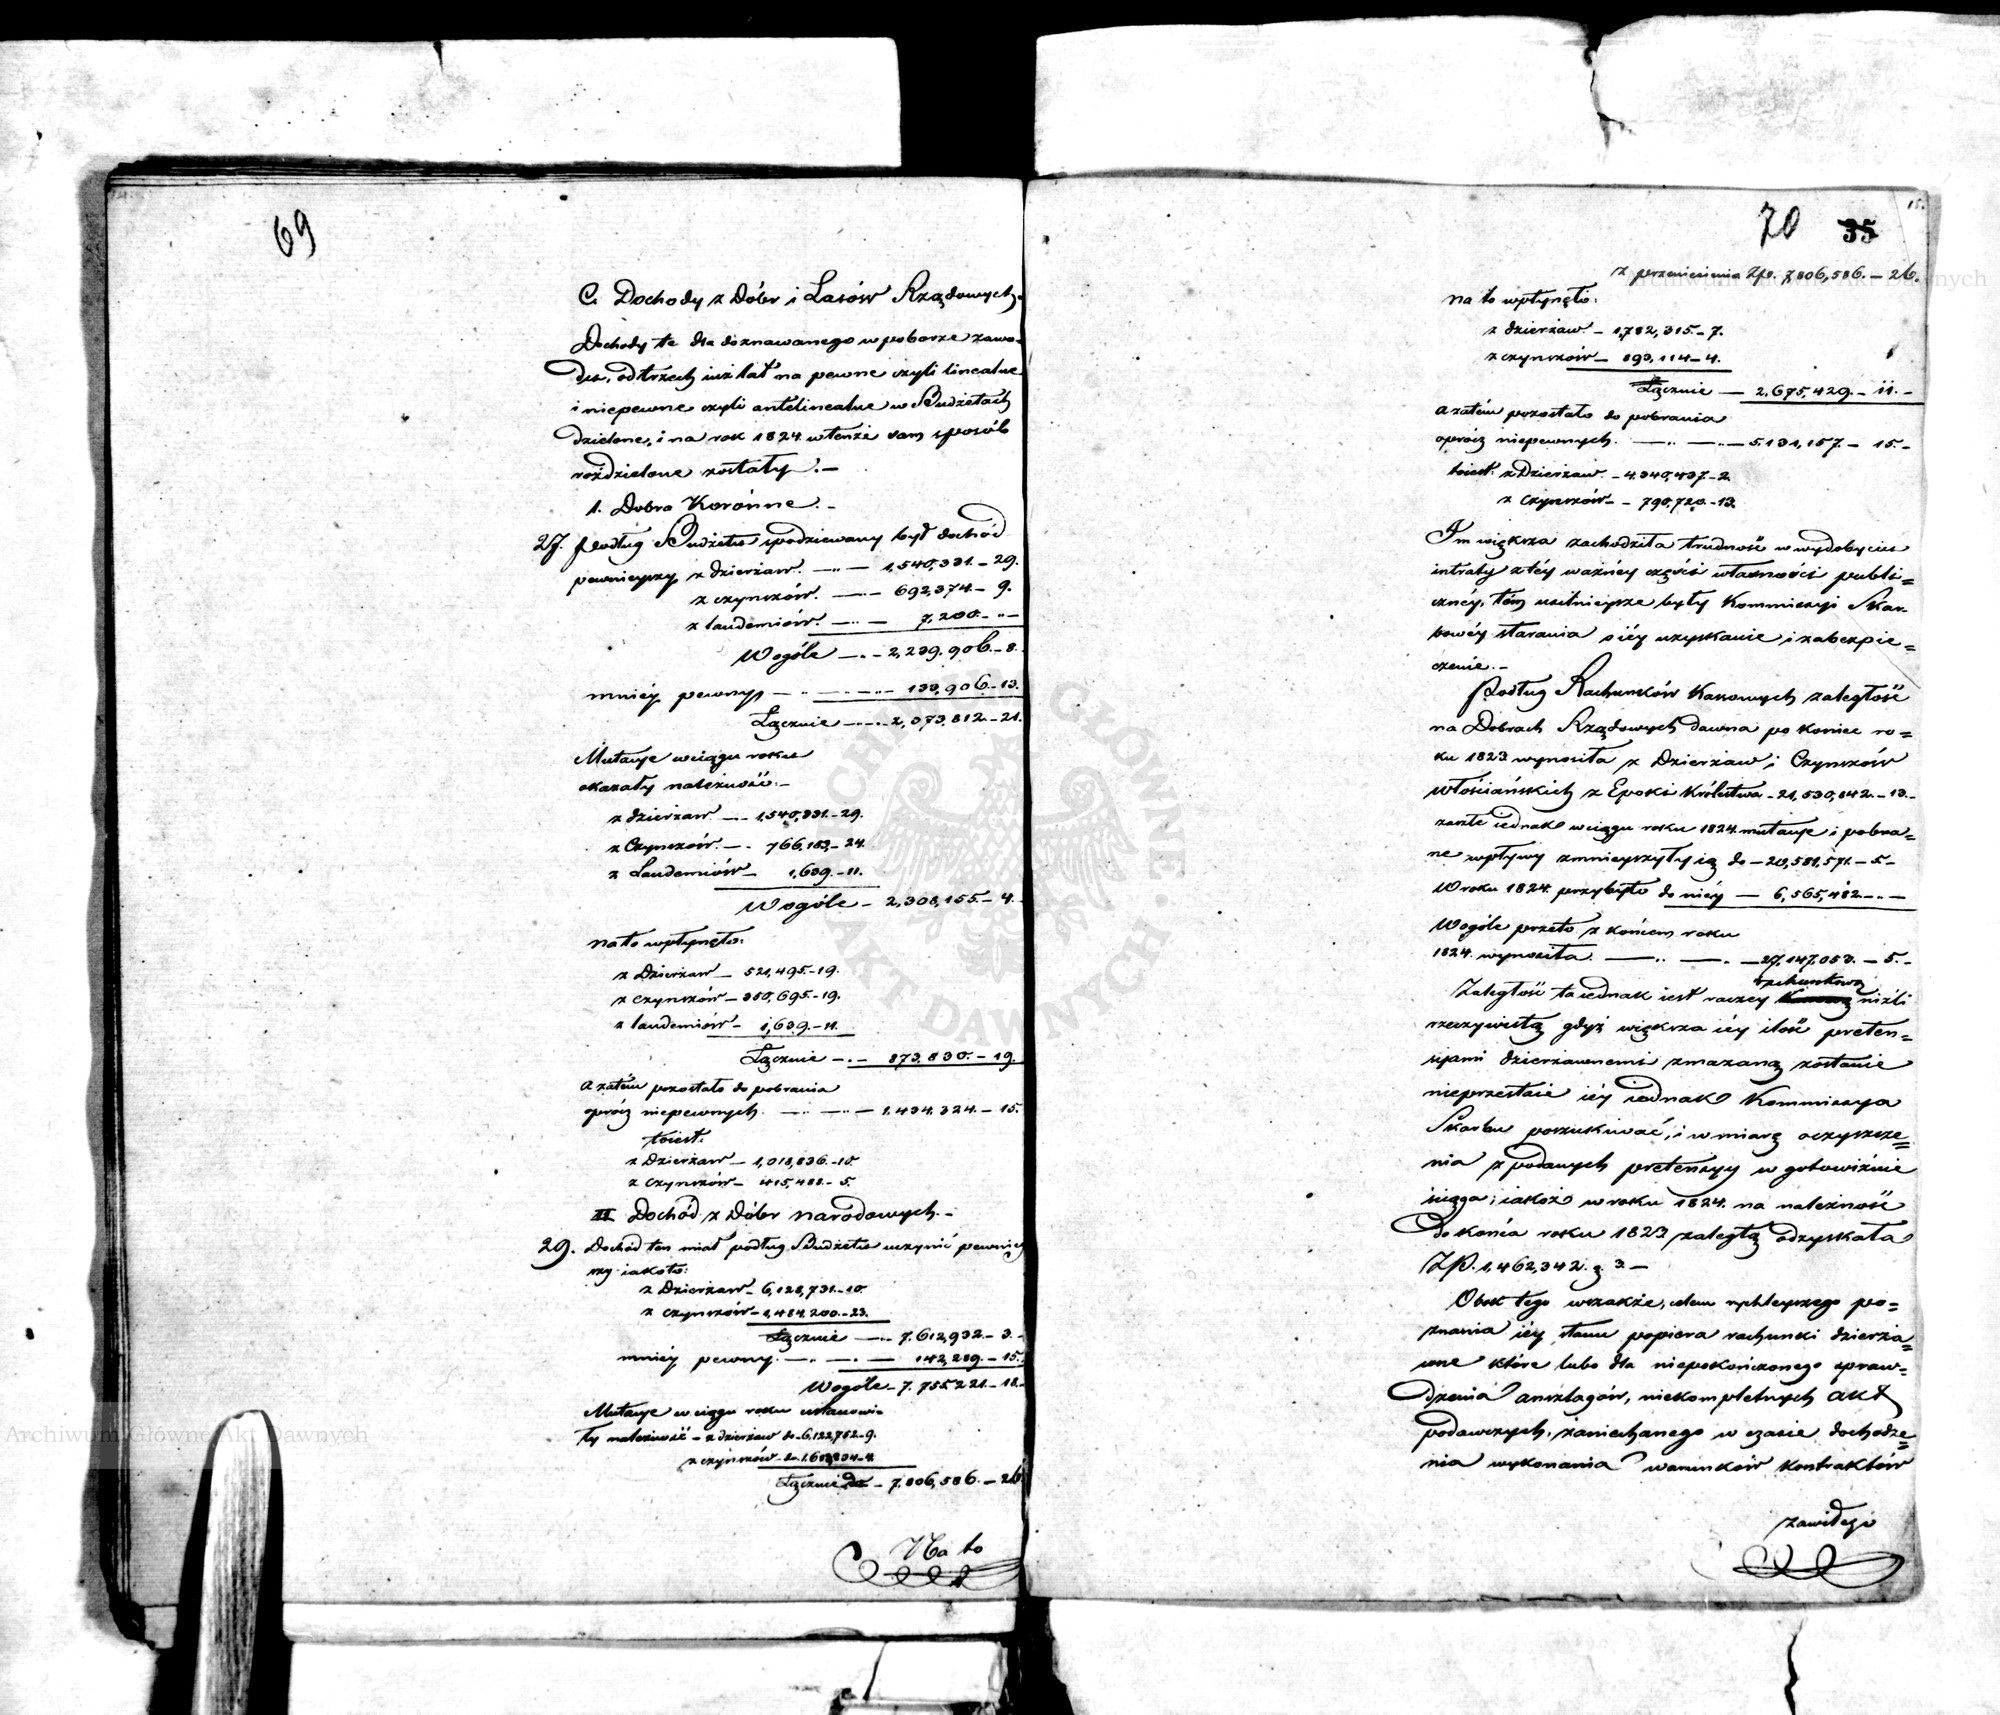 69
C. Dochody z Dóbr i Lasów Rządowych.
Dochody te dla doznawanego w poborze zawo-
du, od trzech iuż lat na pewne czyli linealne
i niepewne czyli antelinealne w Budżetach
dzielone, i na rok 1824 w tenże sam sposób
rozdzielone zostały. —
1. Dobra Koronne. -
27. podług Budżetu spodziewany był dochód
pewnieyszy z dzierżaw. — 1,540,331. — 29.
z czynszów. — 692,374. — 9.
z laudemiów. — 7,200. — " —
Wogóle — 2,239,906. — 8.
mniéy pewny — 133,906. — 13.
Łącznie — 2,373,812. — 21.
Mutacye wciągu roku
okazały należność: -
z dzierżaw — 1,540,331. — 29.
z Czynszów. — 766,183. — 24.
z Laudemiów — 1,639. — 11.
Wogóle — 2,308,155. — 4.
na to wpłynęło:
z Dzierżaw — 521,495. — 19.
z czynszów — 350,695. — 19.
z laudemiów — 1,639. — 11.
Łącznie — 873,830. — 19.
a zatém pozostało do pobrania
oprócz niepewnych. — 1,434,324. — 15.
toiest:
z Dzierżaw — 1,018,836. — 10.
z czynszów — 415,488. — 5.
II Dochód z Dóbr narodowych. -
29. Dochód ten miał podług Budżetu uczynić pewniey
szy iakoto:
z Dzierżaw — 6,128,731. — 10.
z czynszów — 1,484,200. — 23.
Łącznie — 7,612,932. — 3. -
mniéy pewny. — 142,289. — 15.
Wogóle — 7,755,221. — 18. -
Mutacye w ciągu roku ustanowi-
ły należność — z dzierżaw do 6,122,752 — 9.
z czynszów do 1,683,834 — 4.
Łącznie — 7,806,586. — 26
Na to
70 35
15.
z przeniesienia Zło. 7,806,586. — 26.
na to wpłynęło:
z dzierżaw. — 1,782,315. — 7.
z czynszów — 893,114 — 4.
Łącznie — 2,675,429. — 11. -
a zatém pozostało do pobrania
oprócz niepewnych. — 5,131,157. — 15. -
toiest: z Dzierżaw. — 4,340,437. — 2.
z Czynszów — 790,720. — 13.
Im większa zachodziła trudność w wydobyciu
intraty z téy ważnéy części własności publi=
cznéy, tém usilnieysze były Kommissyi Skar-
bowéy starania o iéy uzyskanie i zabezpie=
czenie. -
Podług Rachunków Kassowych zaległość
na Dobrach Rządowych dawna po koniec ro=
ku 1823 wynosiła z Dzierżaw i Czynszów
włościańskich z Epoki Królestwa — 21,530,842. — 13. -
zaszłe iednak w ciągu roku 1824 mutacye i pobra=
ne wpływy zmnieyszyły ią do — 20,581,571. — 5. -
W roku 1824 przybyło do niéy — 6,565,482. — " —
Wogóle przeto z końcem roku
1824. wynosiła. — 27,147,053. — 5. -
rachunkową
Zaległość ta iednak iest raczey niżli
rzeczywistą gdyż większa iéy ilość preten=
syami dzierżawnemi zmazaną zostanie
nieprzestaie iéy iednak Kommissya
Skarbu poszukiwać, i w miarę oczyszcze=
nia z podanych pretensyy w gotowiźnie
ściąga; iakoż w roku 1824. na należność
do końca roku 1823 zaległą odzyskała
Zł. 1,462,342. g. 3. —
Obok tego wszakże, celem rychleyszego po=
znania iéy stanu popiera rachunki dzierża=
wne które lubo dla niepokończonego spraw=
dzenia anszlagów, niekompletnych akt
podawczych, zaniechanego w czasie dochodze=
nia wykonania warunków kontraktów
zawiłego